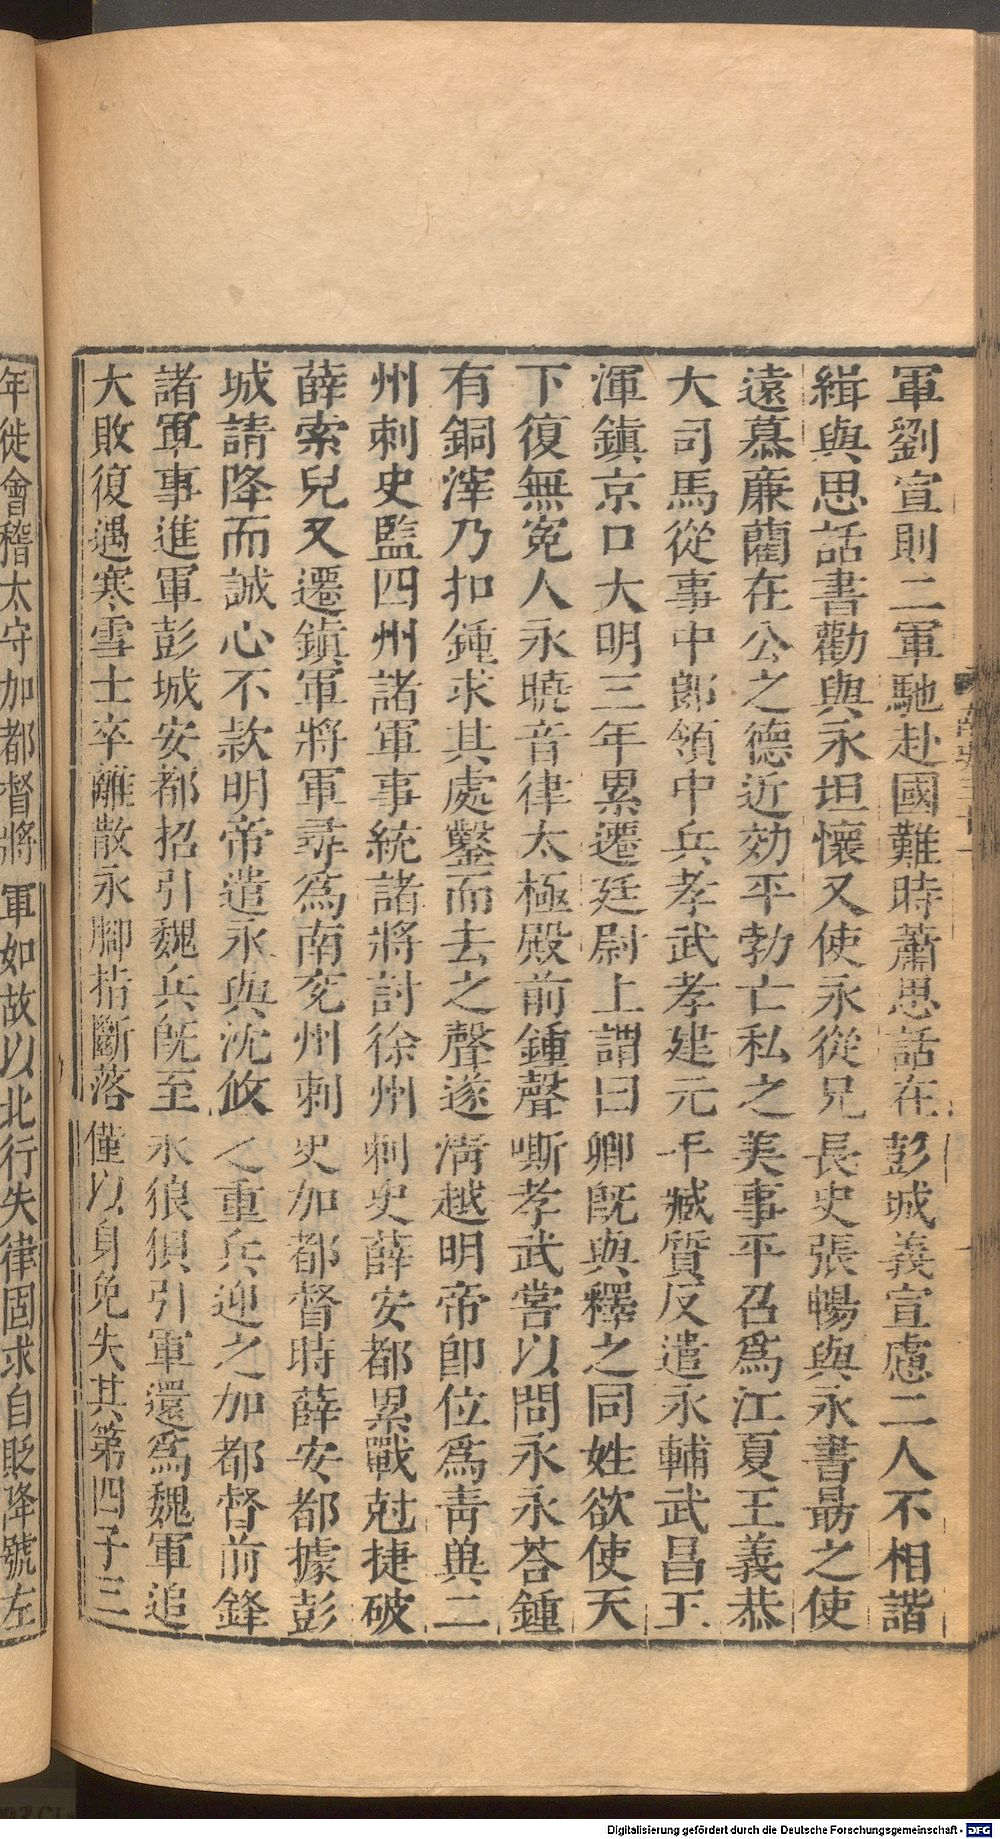 軍劉宣則二軍馳赴國難時蕭思話在彭城義宣慮二人不相諧
緝與思話書勸與永坦懷又使永從兄長史張暢與永書朂之使
遠慕廉藺在公之德近効平勃亡私之美事平召爲江夏王義恭
大司馬從事中郞領中兵孝武孝建元年臧質反遣永輔武昌王
渾鎭京口大明三年累遷廷尉上謂曰卿旣與釋之同姓欲使天
下復無寃人永曉音律太極殿前鍾聲嘶孝武嘗以問永永荅鍾
有銅滓乃扣鍾求其處鑿而去之聲遂淸越明帝卽位爲靑兾二
州刺史監四州諸軍事統諸將討徐州刺史薛安都累戰尅捷破
薛索兒又遷鎭軍將軍尋爲南兖州刺史加都督時薛安都據彭
城請降而誠心不款明帝遣永與沈攸之重兵迎之加都督前鋒
諸軍事進軍彭城安都招引魏兵旣至永狼狽引軍還爲魏軍追
大敗復遇寒雪士卒離散永腳指斷落僅以身免失其第四子三
年徙會稽太守加都督將軍如故以北行失律固求自貶降號左
Digitalisierung gefördert durch die Deutsche Forschungsgemeinschaft - DFG